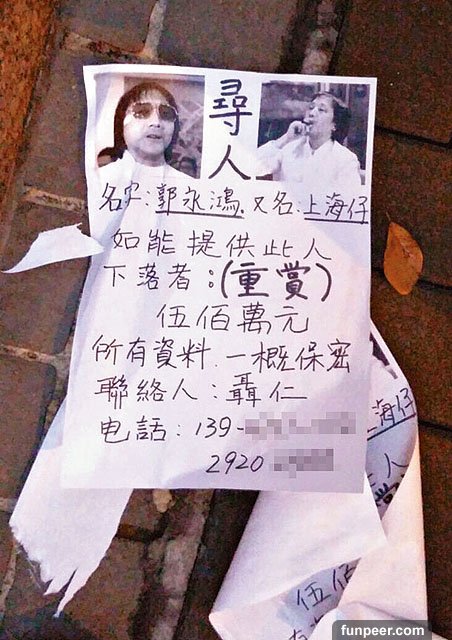 尋人
名字：郭永鴻．又名：上海仔
如能提供此人
下落者：(重賞)
伍佰萬元
所有資料．一概保密
聯絡人：聶仁
电話：139-
2920
上海仔
人
賞
伍佰
funpeer.com